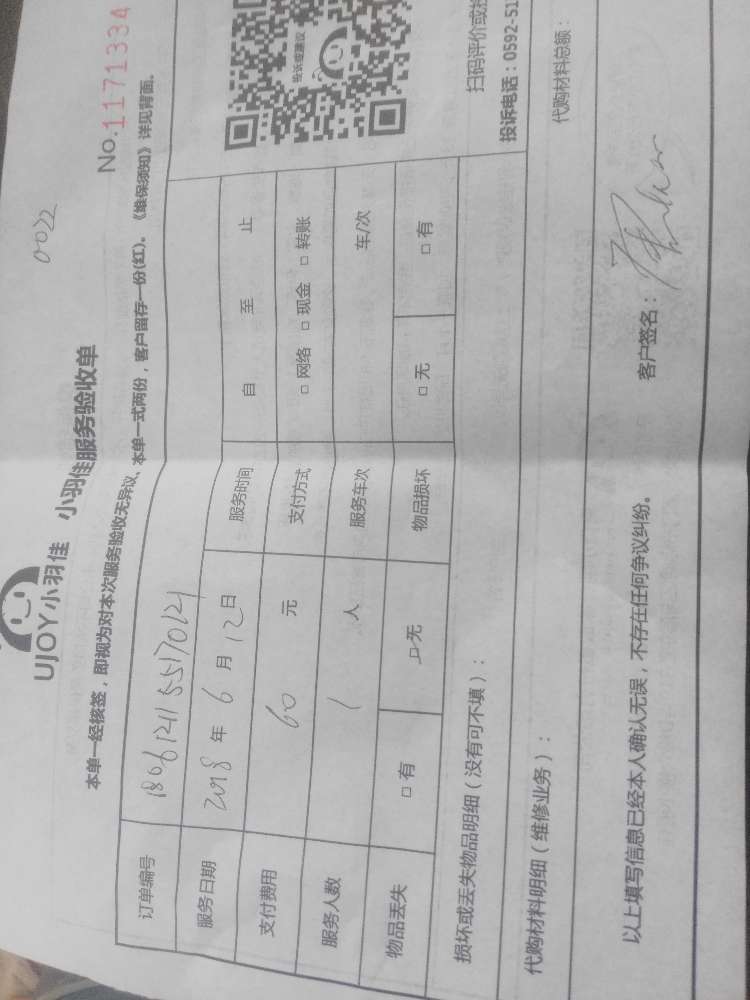 UJOY小羽佳 小羽佳服务验收单
0022
No.1171334
本单一经核签，即视为对本次服务验收无异议、本单一式两份，客户留存一份(红)。《维保须知》详见背面。
订单编号 180612115517012
服务日期 2018 年 6 月 12 日 服务时间 自 至 止
支付费用 60 元 支付方式 □ 网络 □ 现金 □ 转账
服务人数 1 人 服务车次 车/次
物品丢失 □ 有 □ 无 物品损坏 □ 无 □ 有
投诉或建议
扫码评价或投
投诉电话：0592-51
损坏或丢失物品明细（没有可不填）：
代购材料明细（维修业务）： 代购材料总额：
以上填写信息已经本人确认无误，不存在任何争议纠纷。 客户签名：